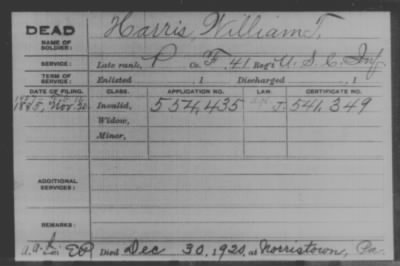 DEAD
Harris, William T.
NAME OF SOLDIER:
SERVICE: Late rank, P Co. F, 41 Reg't U. S. C. Inf
TERM OF SERVICE: Enlisted , 1 Discharged , 1
DATE OF FILING. CLASS. APPLICATION NO. LAW. CERTIFICATE NO.
1885, Nov. 20 Invalid, 554,435 J. 541,349
Widow,
Minor,
ADDITIONAL SERVICES:
REMARKS:
Died Dec 30, 1920, at Norristown, Pa.